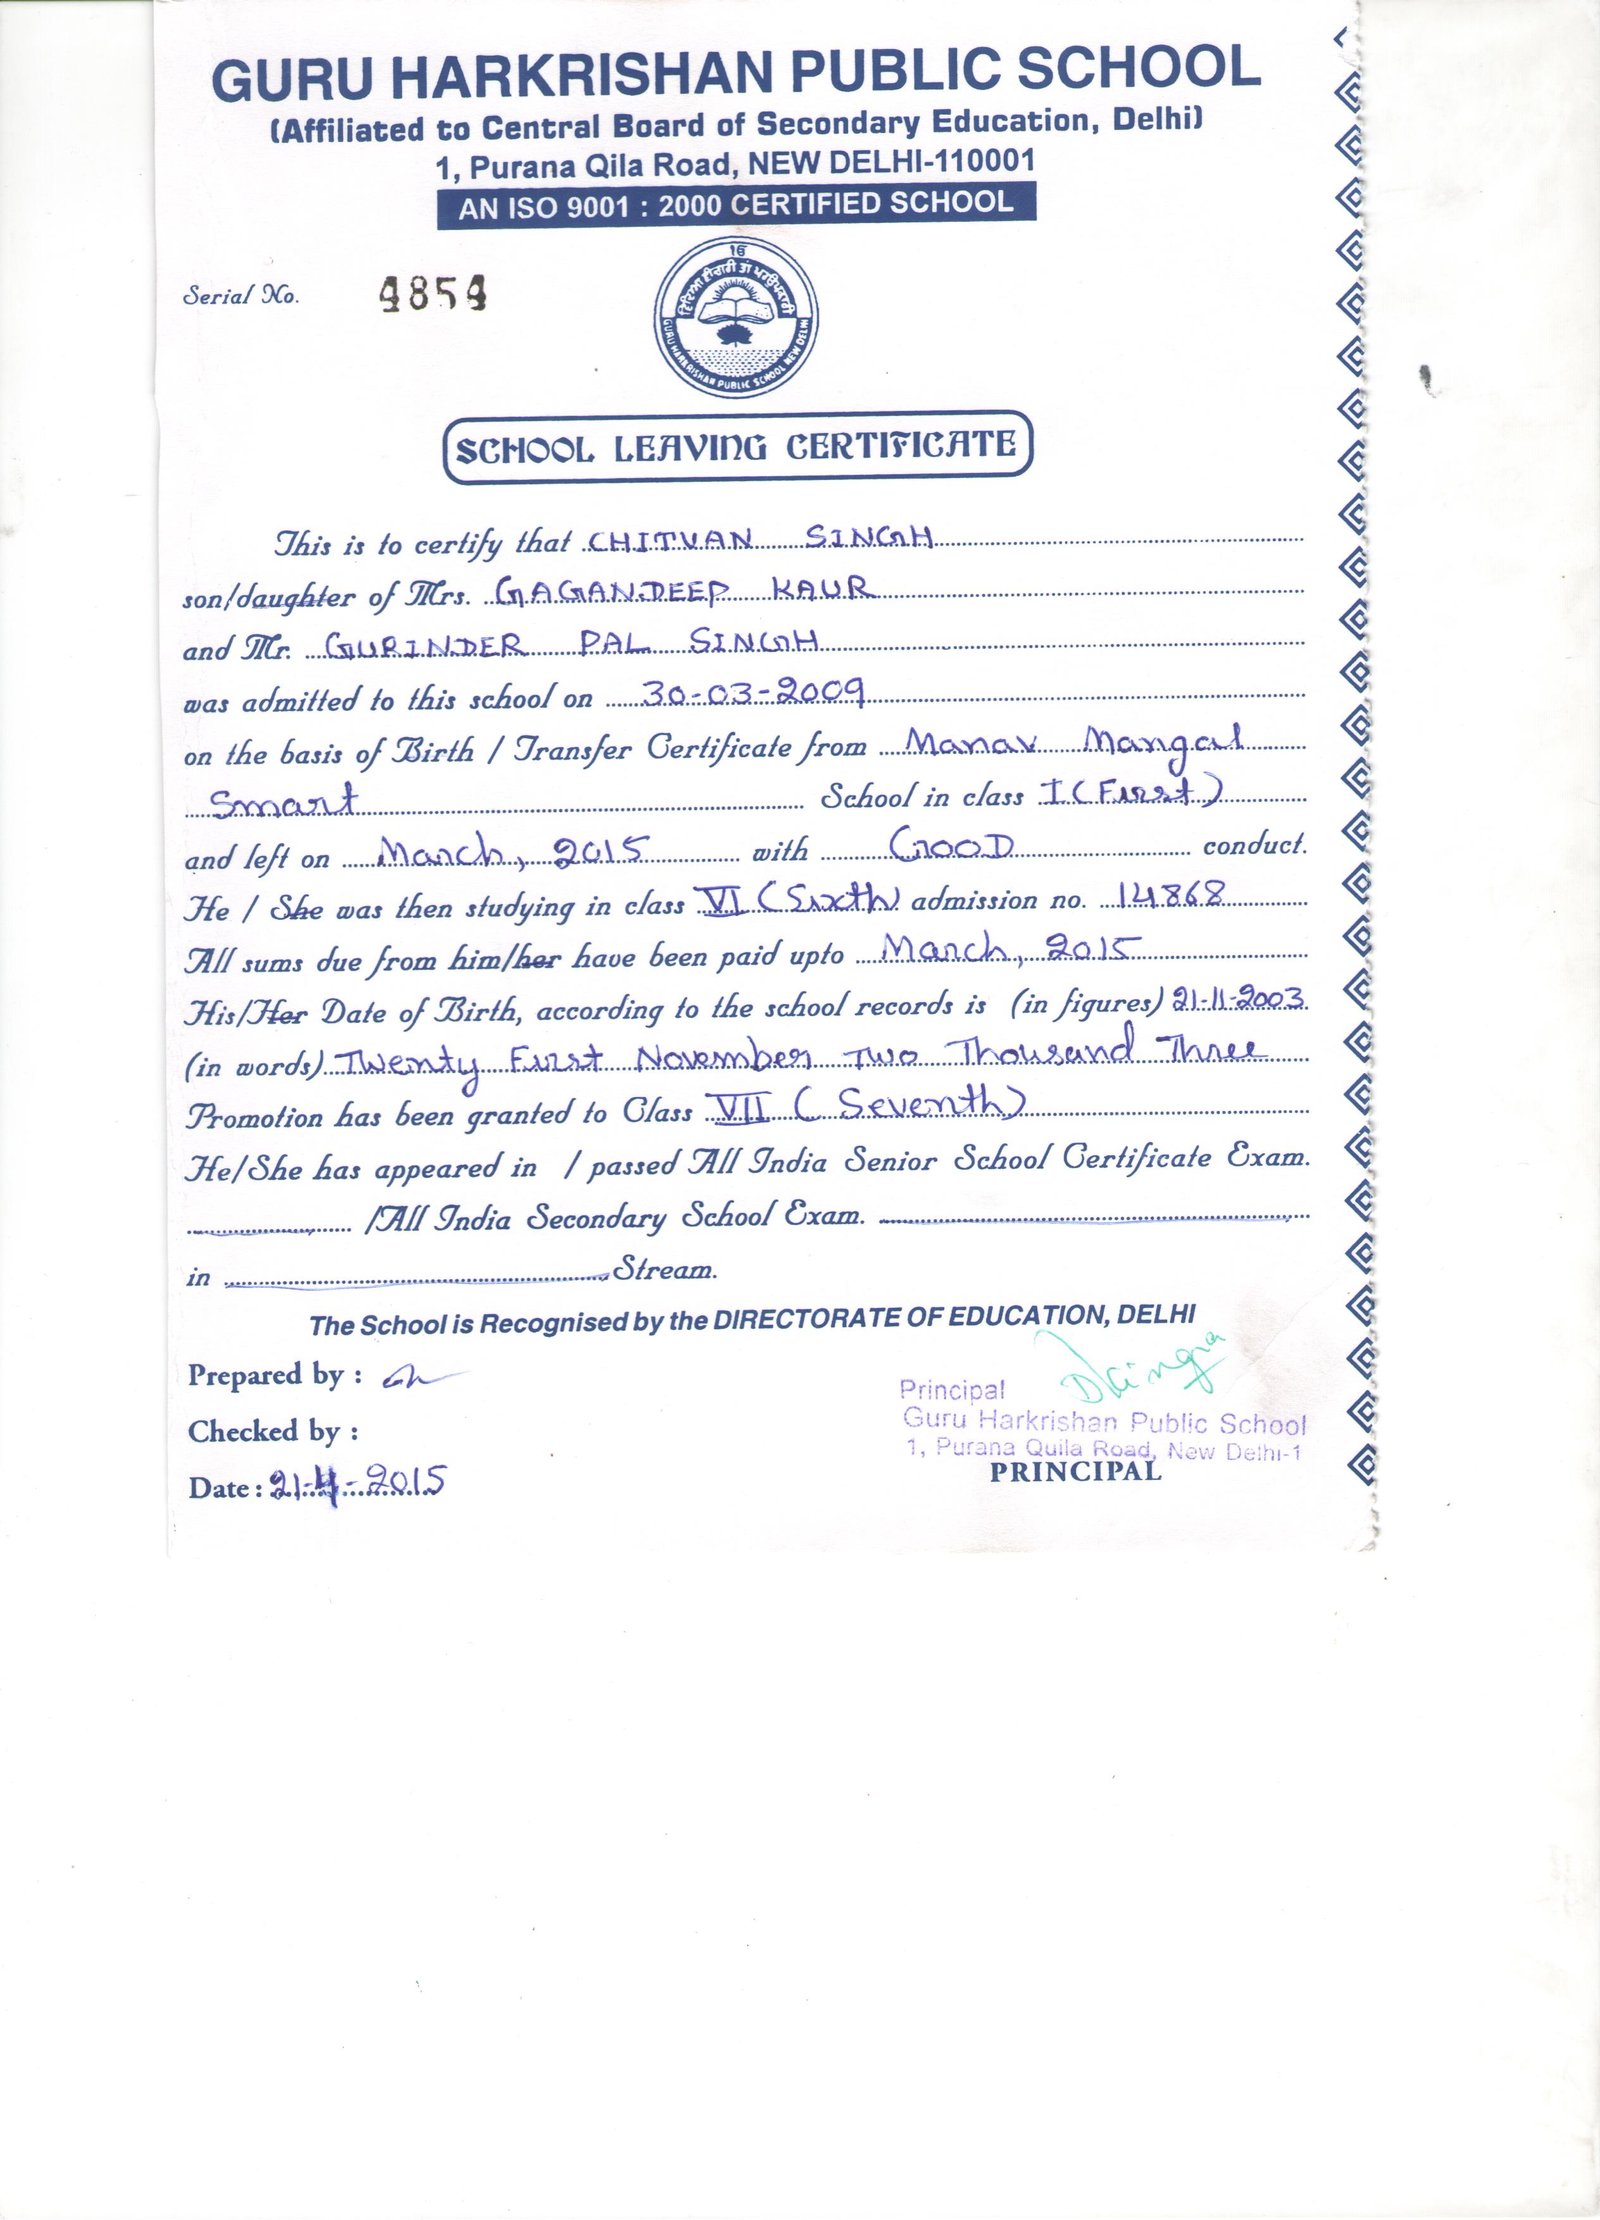 GURU HARKRISHAN PUBLIC SCHOOL
(Affiliated to Central Board of Secondary Education, Delhi)
1, Purana Qila Road, NEW DELHI-110001
AN ISO 9001 : 2000 CERTIFIED SCHOOL
Serial No. 4854
ੴ
ਵਿਦਿਆ ਵੀਚਾਰੀ ਤਾਂ ਪਰਉਪਕਾਰੀ
GURU HARKRISHAN PUBLIC SCHOOL NEW DELHI
SCHOOL LEAVING CERTIFICATE
This is to certify that CHITVAN SINGH
son/daughter of Mrs. GAGANDEEP KAUR
and Mr. GURINDER PAL SINGH
was admitted to this school on 30-03-2009
on the basis of Birth / Transfer Certificate from Manav Mangal
Smart School in class I (First)
and left on March, 2015 with GOOD conduct.
He / She was then studying in class VI (Sixth) admission no. 14868
All sums due from him/her have been paid upto March, 2015
His/Her Date of Birth, according to the school records is (in figures) 21-11-2003
(in words) Twenty First November Two Thousand Three
Promotion has been granted to Class VII (Seventh)
He/She has appeared in / passed All India Senior School Certificate Exam.
/All India Secondary School Exam.
in Stream.
The School is Recognised by the DIRECTORATE OF EDUCATION, DELHI
Prepared by :
Principal
Guru Harkrishan Public School
Checked by :
1, Purana Quila Road, New Delhi-1
PRINCIPAL
Date : 21-4-2015